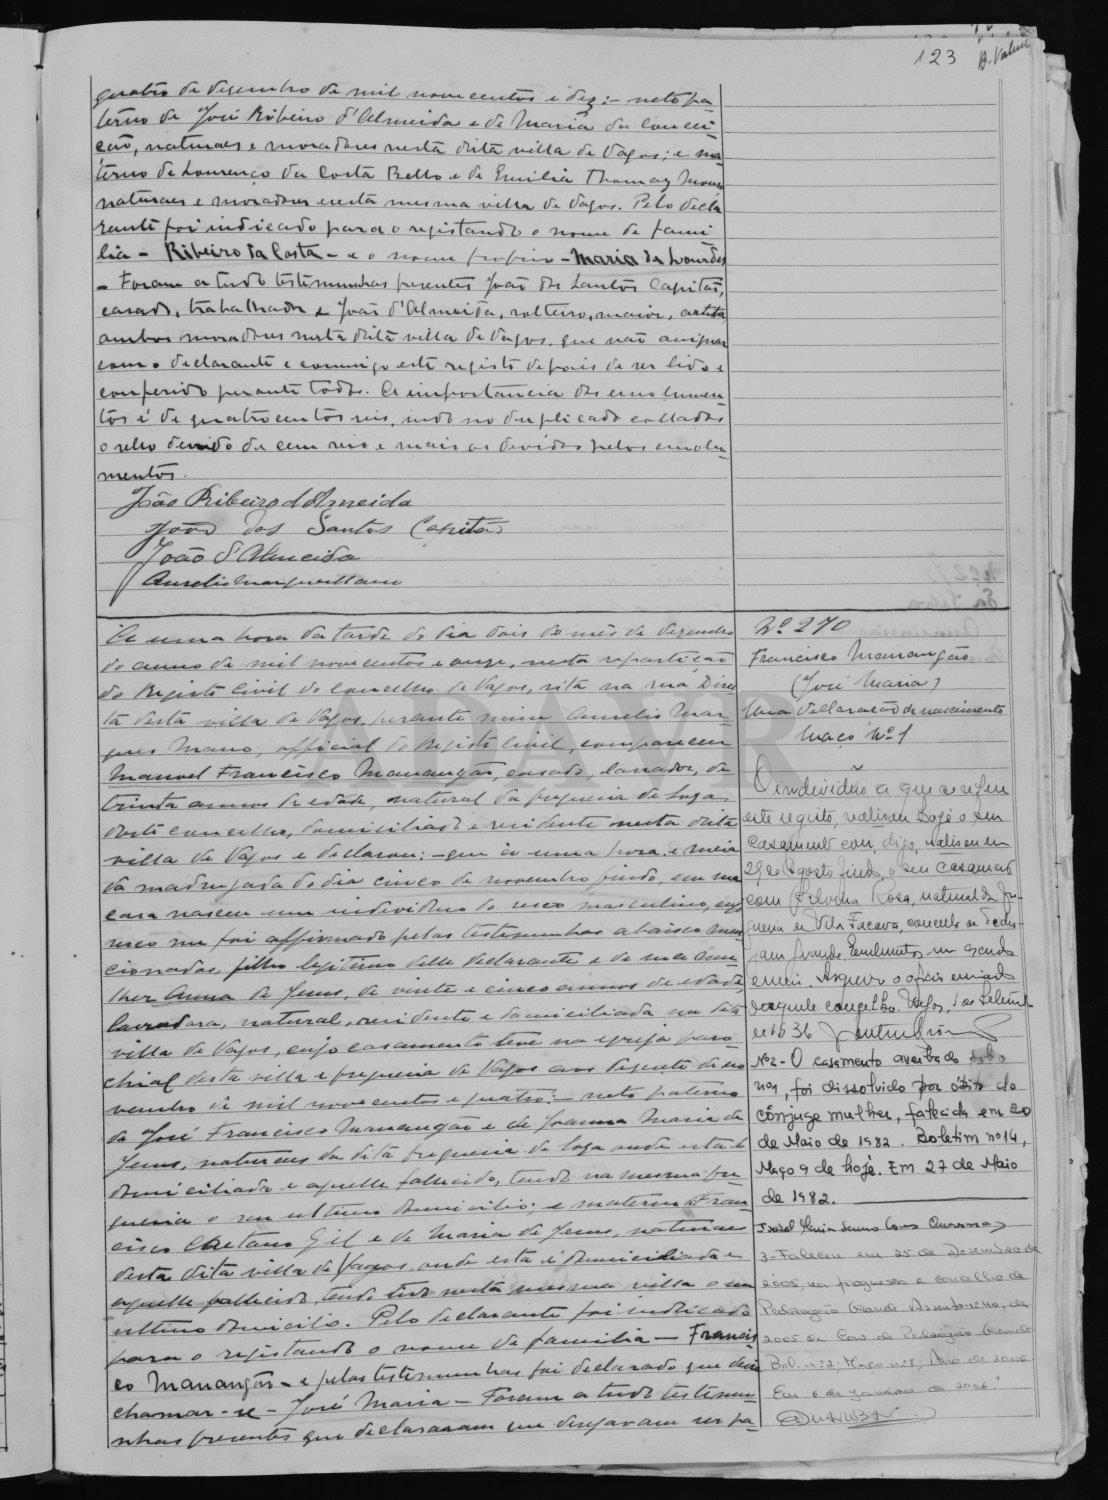 123
quatro de dezembro de mil novecentos e dez:- neto pa-
terno de José Ribeiro d'Almeida e de Maria da Concei-
ção, naturaes e moradores nesta dita villa de Vagos; e ma-
terno de Lourenço da Costa Bello e de Emilia Thomaz
naturaes e moradores nesta mesma villa de Vagos. Pelo decla
rante foi indicado para o registando o nome de fami
lia - Ribeiro da Costa - e o nome proprio - Maria de Lourdes
- Foram a tudo testemunhas presentes João dos Santos Capitão,
casado, trabalhador e João d'Almeida, solteiro, maior, artista,
ambos moradores nesta dita villa de Vagos, que vão assignar
com o declarante e commigo este registo depois de ser lido e
conferido perante todos. A importancia dos emolumen-
tos é de quatrocentos reis, indo no duplicado collados
o sello devido de cem reis e mais os devidos pelos emolu-
mentos.
João Ribeiro d'Almeida
João dos Santos Capitão
João d'Almeida
Aurelio Marques Mano
A uma hora da tarde do dia dois do mês de dezembro
do anno de mil novecentos e onze, nesta repartição
do Registo Civil do Concelho de Vagos, sita na rua Direi
ta desta villa de Vagos, perante mim Aurelio Mar-
ques Mano, official do Registo Civil, compareceu
Manoel Francisco Manangão, casado, lavrador, de
trinta annos de edade, natural da freguesia de Soza
deste concelho, domiciliado e residente nesta dita
villa de Vagos e declarou:- que á uma hora e meia
da madrugada do dia cinco de novembro findo, em sua
casa nasceu um individuo do sexo masculino, cujo
sexo me foi affirmado pelas testemunhas abaixo men
cionadas, filho legitimo delle declarante e de sua mu-
lher Anna de Jesus, de vinte e cinco annos de edade,
lavradora, natural, residente e domiciliada na dita
villa de Vagos, cujo casamento teve na egreja paro-
chial desta villa e freguesia de Vagos aos de no
vembro de mil novecentos e quatro:- neto paterno
de José Francisco Manangão e de Joanna Maria de
Jesus, naturaes da dita freguesia de Soza onde esta é
domiciliada e aquelle fallecido, tendo na mesma fre
guesia o seu ultimo domicilio; e materno de Fran
cisco Caetano Gil e de Maria de Jesus, naturaes
desta dita villa de Vagos, onde esta é domiciliada e
aquelle fallecido, tendo tido nesta mesma villa o seu
ultimo domicilio. Pelo declarante foi indicado
para o registando o nome de familia - Francis
co Manangão - e pelas testemunhas foi declarado que deve
chamar-se - José Maria - Foram a tudo testemu
nhas presentes que declararam que desejavam ser pa-
Nº 270
Francisco Manangão
(José Maria)
Uma declaração de nascimento
Maço Nº 1
O individuo a que se refere
este registo, realisou hoje o seu
casamento com, digo, realisou em
29 de Agosto findo, o seu casamento
com Silvina Rosa, natural da fre
guesia de Vila Facaia, concelho de Pedro-
gam Grande
Arquivo o oficio enviado
daquele concelho. Vagos, 1 de Setembro
de 1936
Nº 2 - O casamento averbado sob o
nº 1, foi dissolvido por óbito do
cônjuge mulher, falecida em 20
de Maio de 1982. Boletim nº 14,
Maço 9 de hoje. Em 27 de Maio
de 1982.
3 - Faleceu em 25 de Dezembro de
2005, na freguesia e concelho de
Pedrogão Grande. Assento nº de
2005 da Cons. de Pedrogão Grande
Bol. nº 2; Maço nº 8; Ano de 2006
Em 6 de Janeiro de 2006.